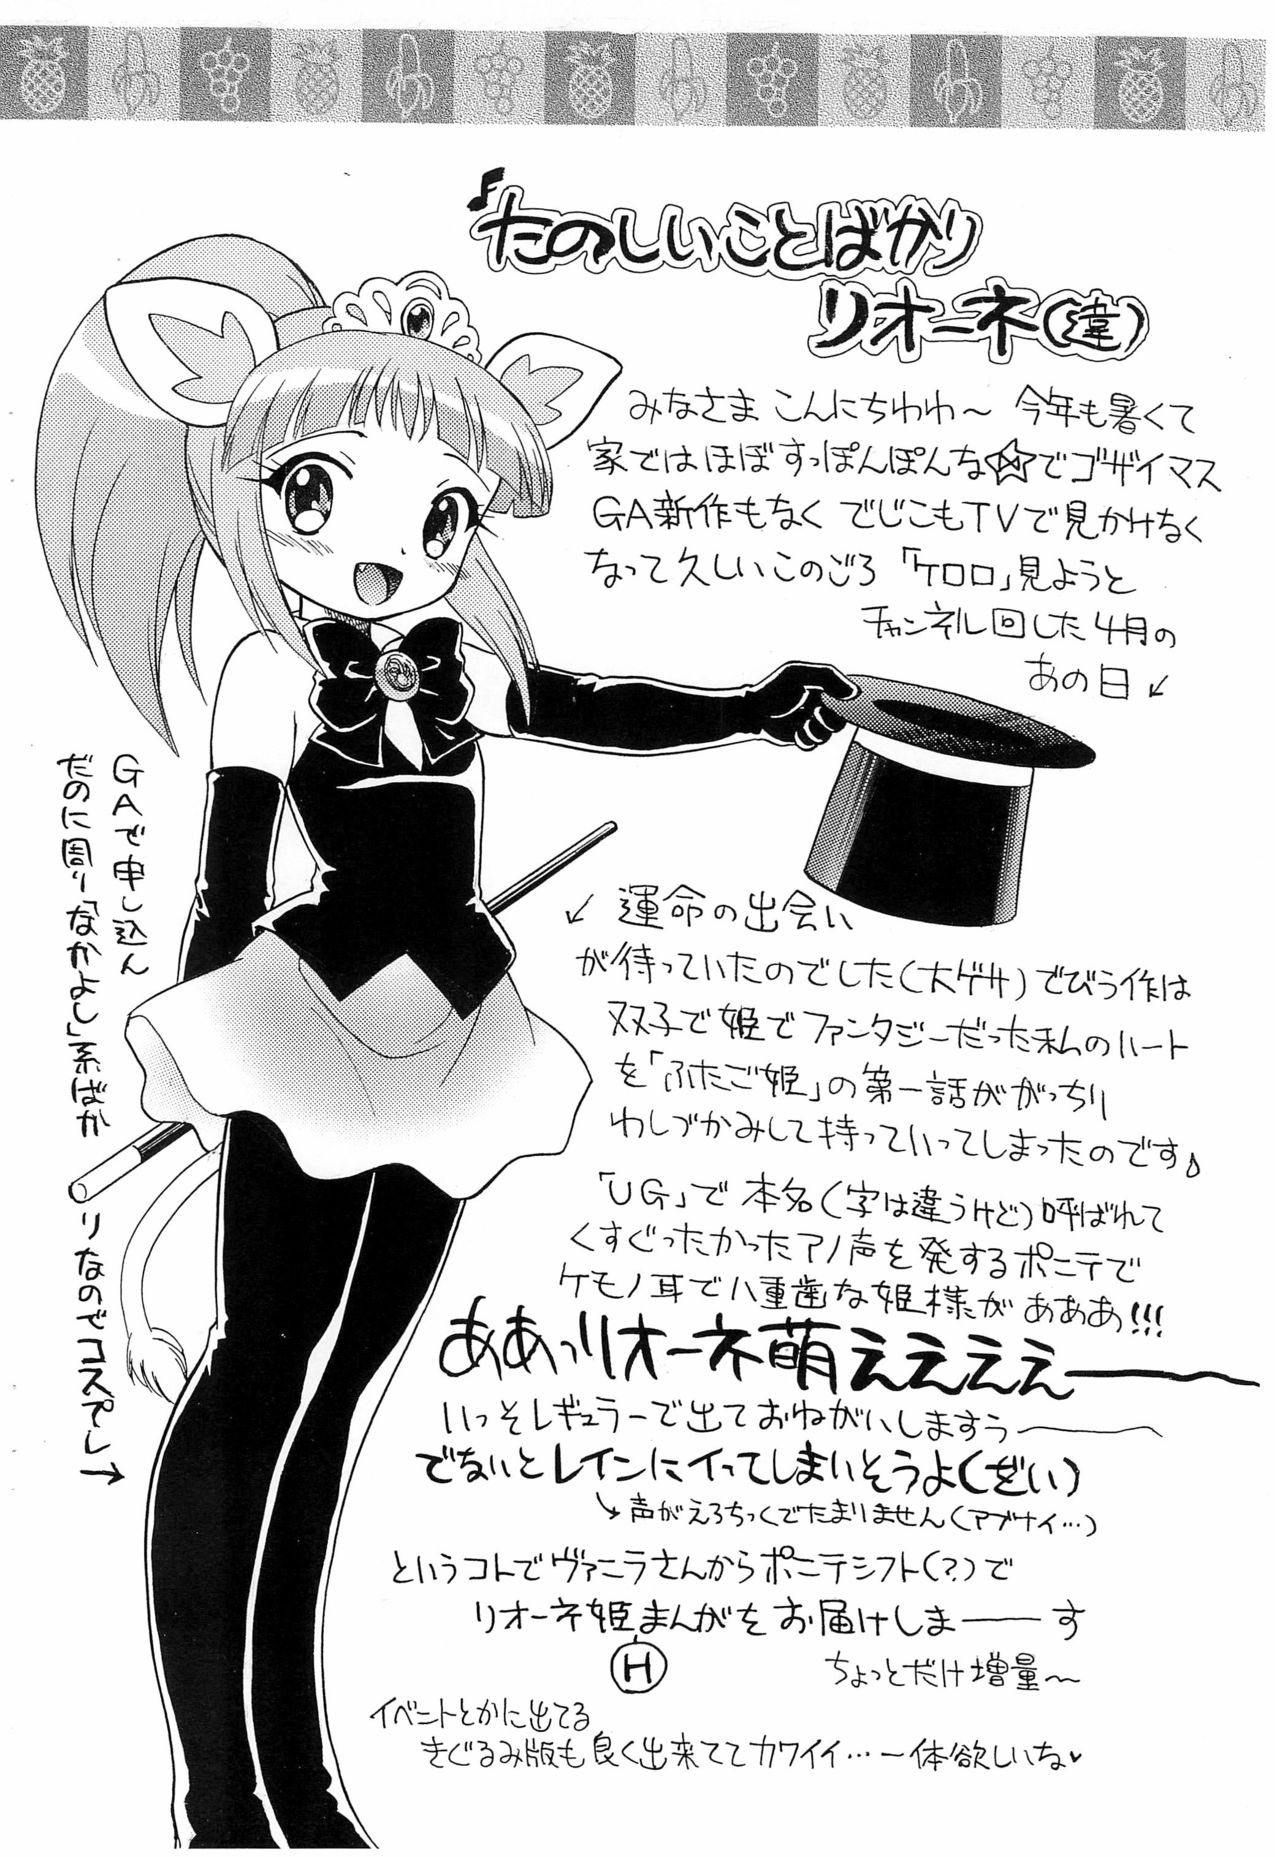 ♪たのしいことばかり
リオーネ(違)
みなさま こんにちわわ〜 今年も暑くて
家ではほぼすっぽんぽんな☆でゴザイマス
GA新作もなく でじこもTVで見かけなく
なって久しいこのごろ「ケロロ」見ようと
チャンネル回した4月の
あの日↙
↙運命の出会い
が待っていたのでした(大ゲサ)でびう作は
双子で姫でファンタジーだった私のハート
を「ふたご姫」の第一話ががっちり
わしづかみして持っていってしまったのです♪
「UG」で本名(字は違うけど)呼ばれて
くすぐったかったアノ声を発するポニテで
ケモノ耳で八重歯な姫様がぁぁぁ!!!
ああっリオーネ萌ええええ――
いっそレギュラーで出ておねがいしますぅ――
でないとレインにイってしまいそうよ(ざい)
↘声がえろちっくでたまりません(アブナイ…)
というコトでヴァニラさんからポニテシフト(?)で
リオーネ姫まんがをお届けしま――す
H
ちょっとだけ増量〜
イベントとかに出てる
きぐるみ版も良く出来ててカワイイ…一体欲しいな♥
GAで申し込ん
だのに周り「なかよし」系ばか
りなのでコスプレ→